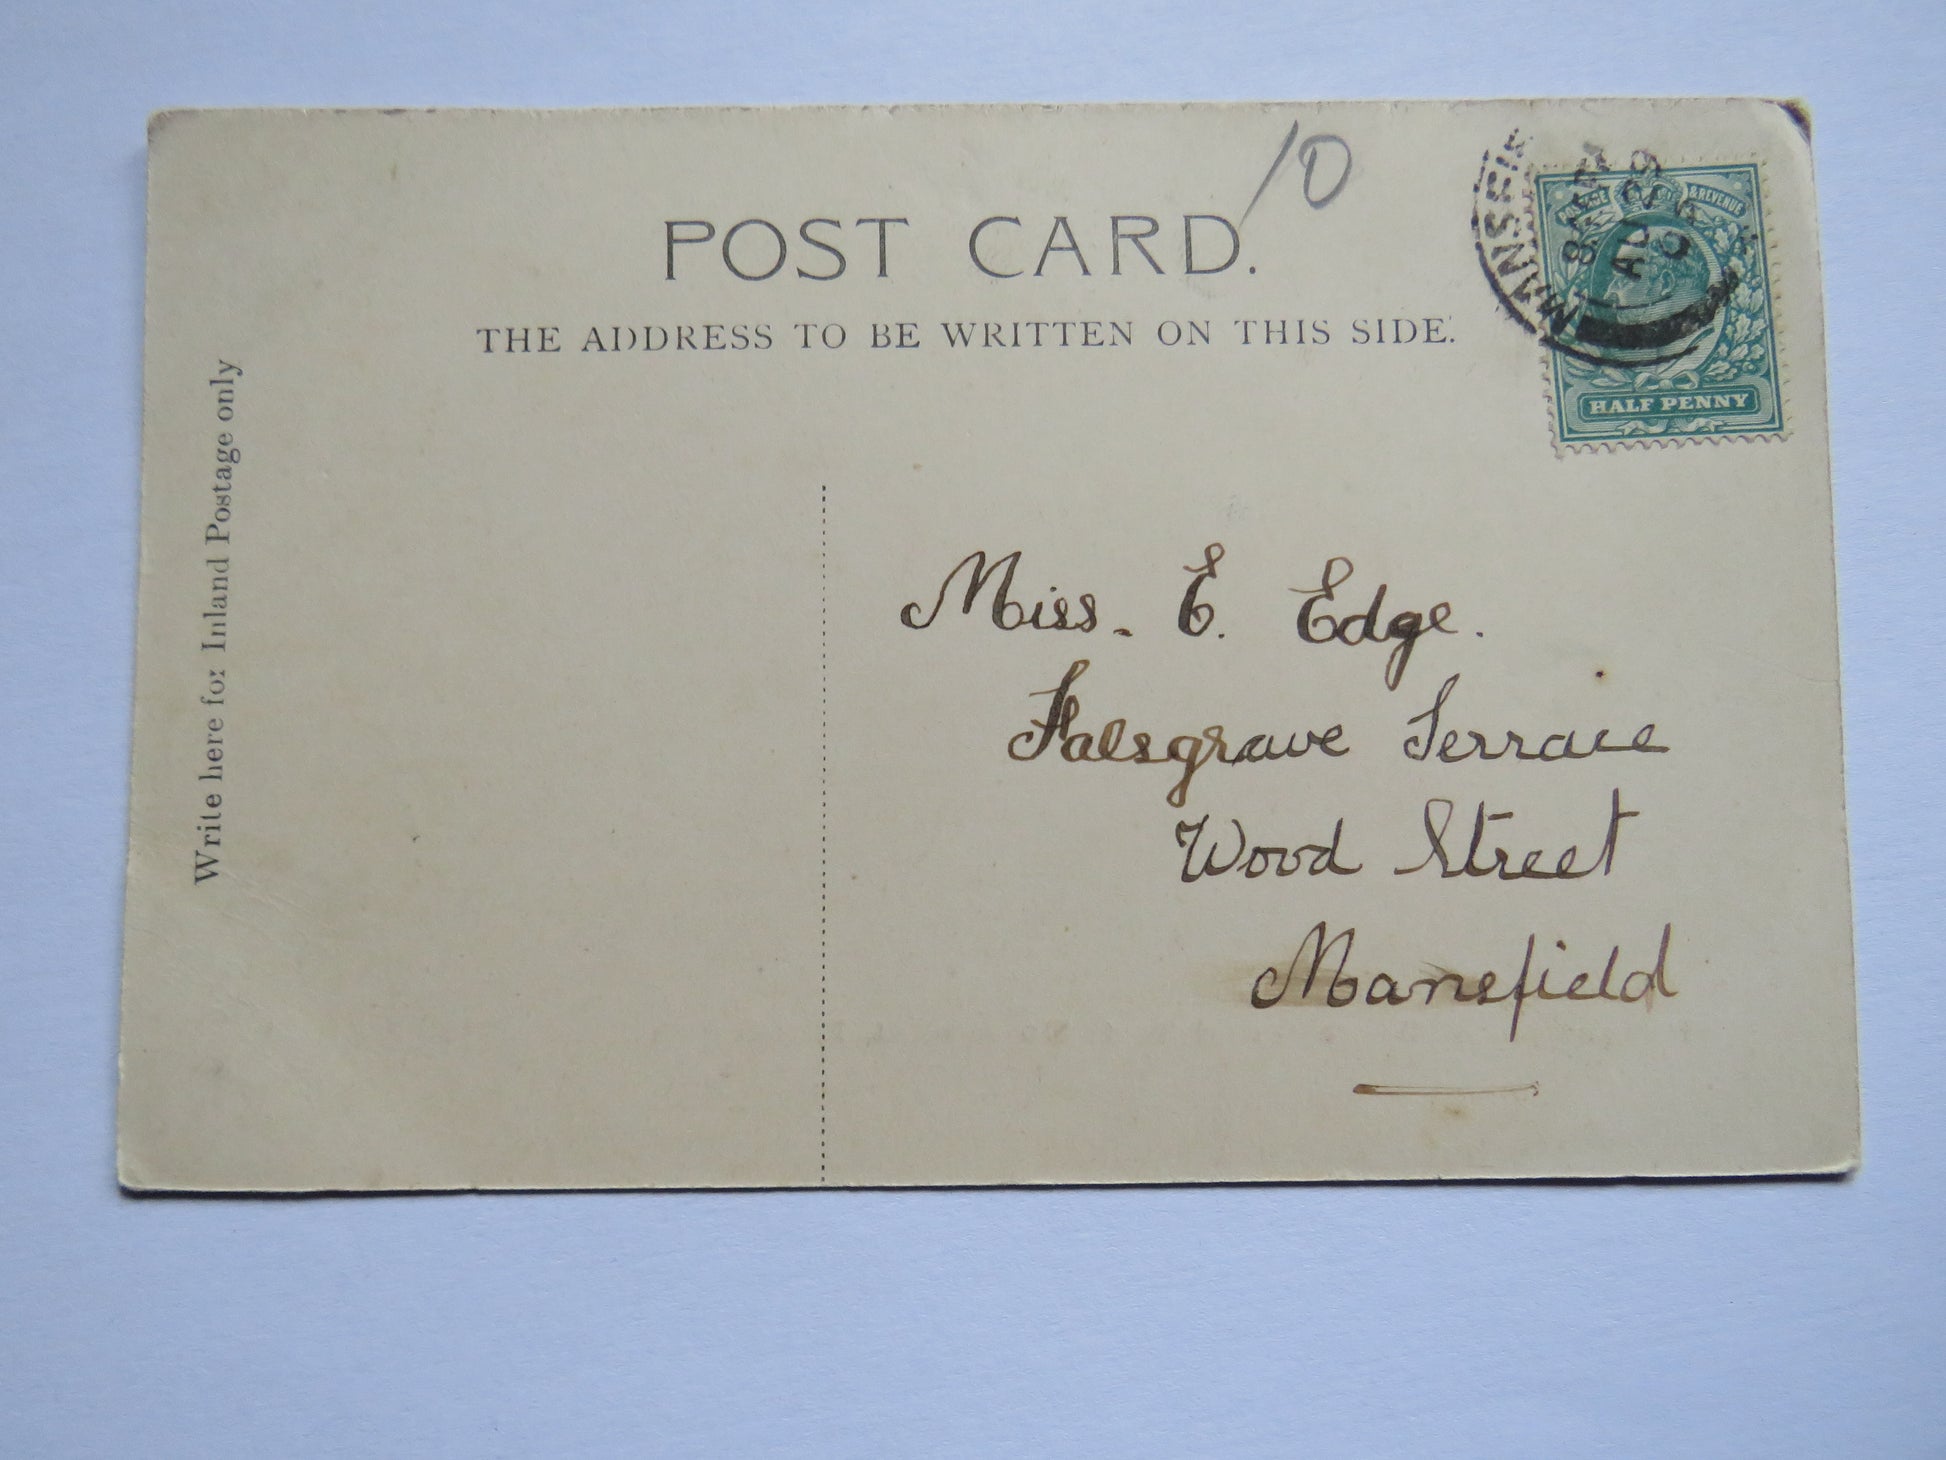 10
POST CARD.
THE ADDRESS TO BE WRITTEN ON THIS SIDE.
Write here for Inland Postage only
POSTAGE & REVENUE
HALF PENNY
MANSFI
AU
Miss. E. Edge.
Falsgrave Terrace
Wood Street
Mansfield